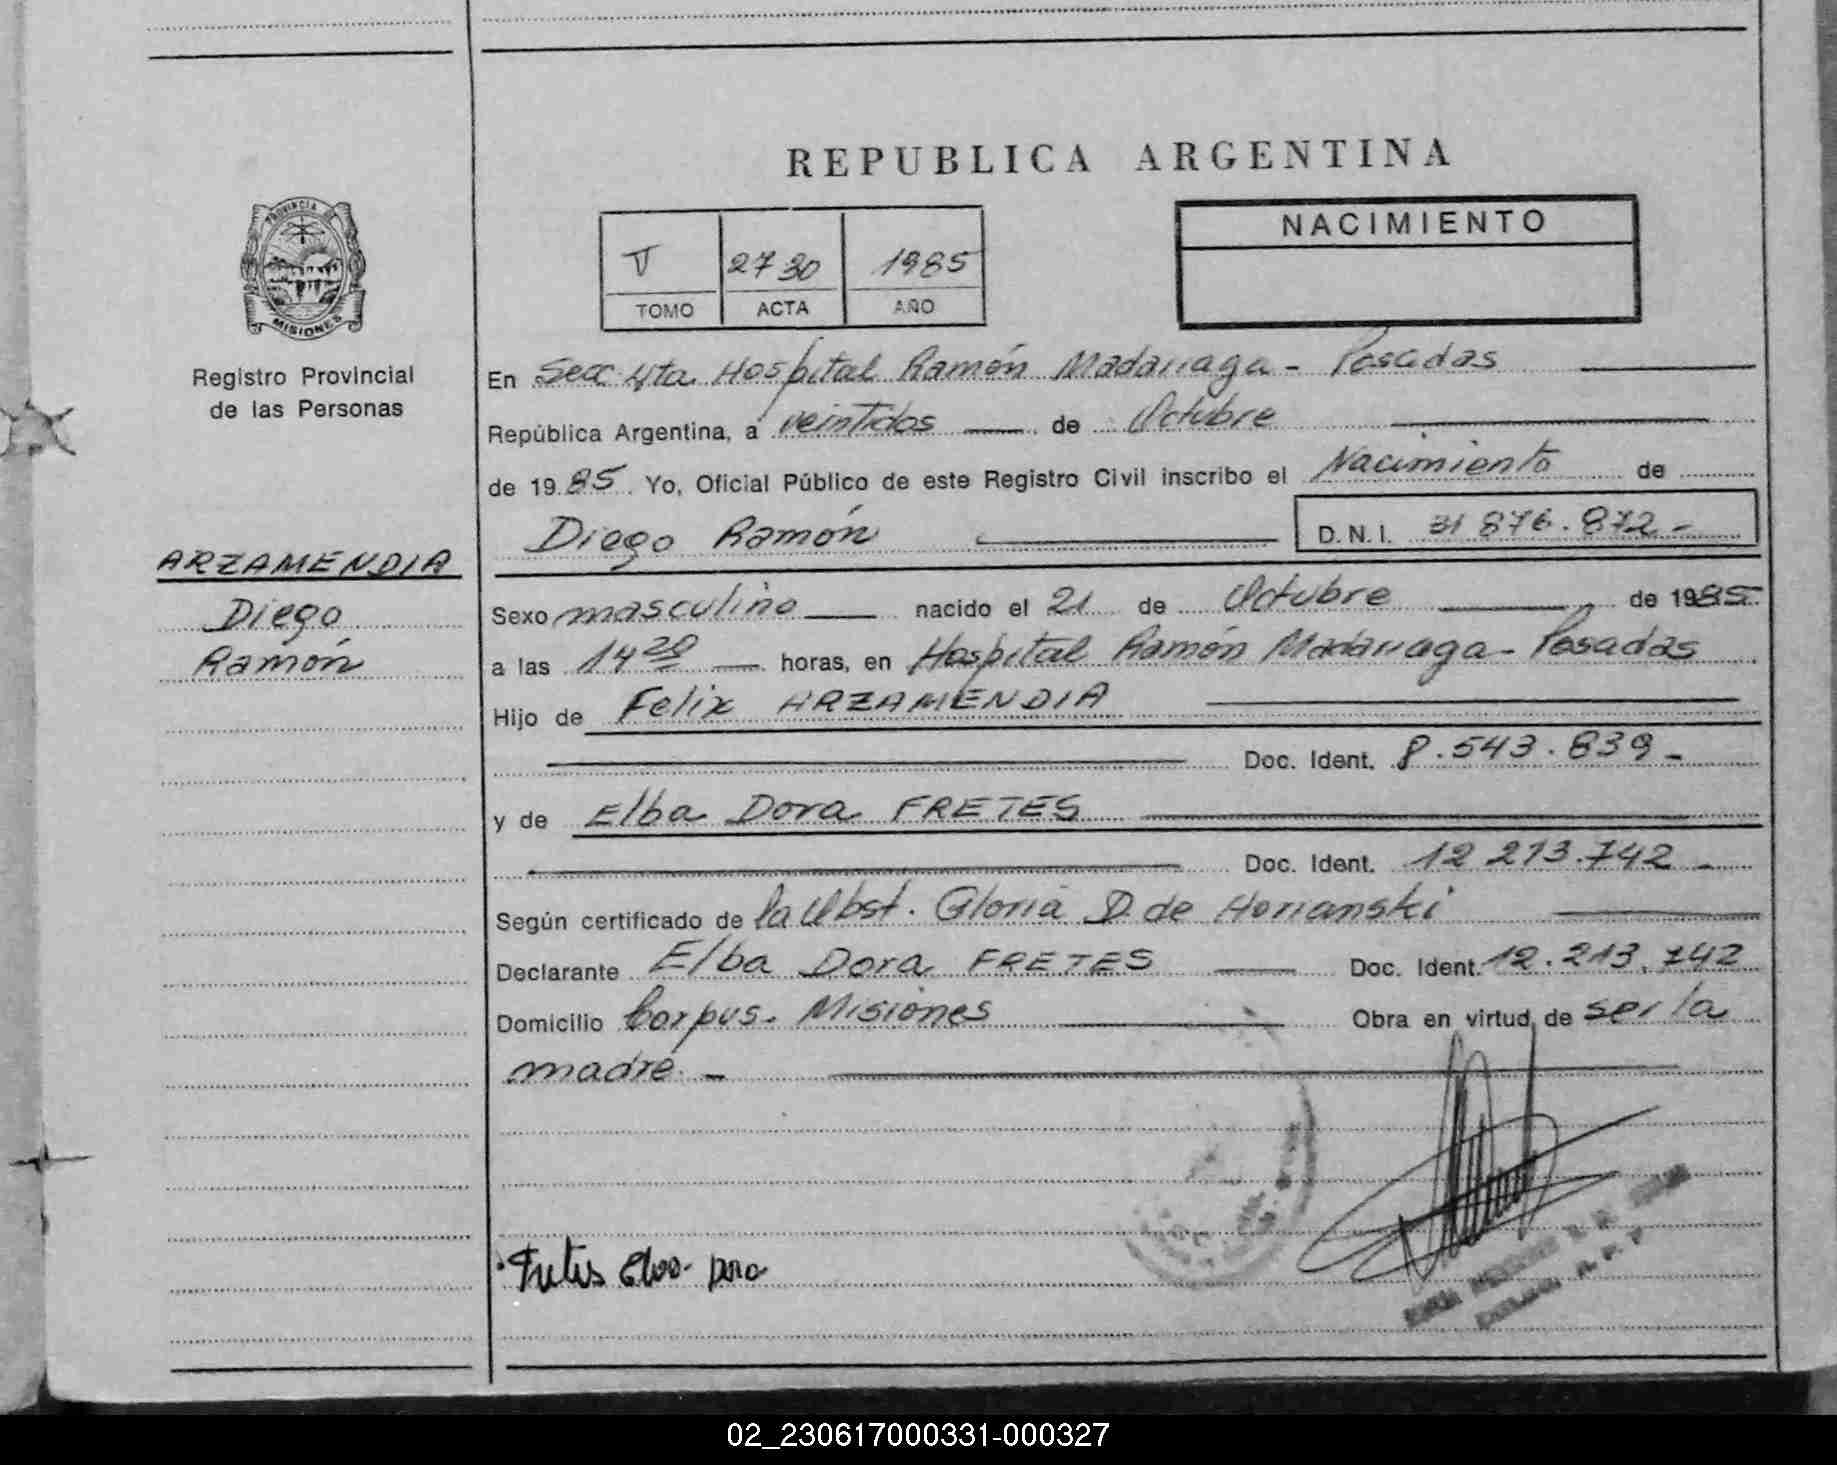 REPUBLICA ARGENTINA
PROVINCIA DE
MISIONES
Registro Provincial
de las Personas
V 2730 1985
TOMO ACTA AÑO
NACIMIENTO
En Secc 4ta Hospital Ramón Madariaga - Posadas
República Argentina, a veintidos de Octubre
de 1985. Yo, Oficial Público de este Registro Civil inscribo el Nacimiento de
Diego Ramón D.N.I. 31 876.872-
ARZAMENDIA
Diego
Ramón
Sexo masculino nacido el 21 de Octubre de 1985
a las 14 20 horas, en Hospital Ramón Madariaga - Posadas
Hijo de Felix ARZAMENDIA
Doc. Ident. 8.543.839-
y de Elba Dora FRETES
Doc. Ident. 12 213.742-
Según certificado de la Obst. Gloria D. de Horianski
Declarante Elba Dora FRETES Doc. Ident. 12.213.742
Domicilio Corpus. Misiones Obra en virtud de ser la
madre.-
Fretes Elba Dora
02_230617000331-000327